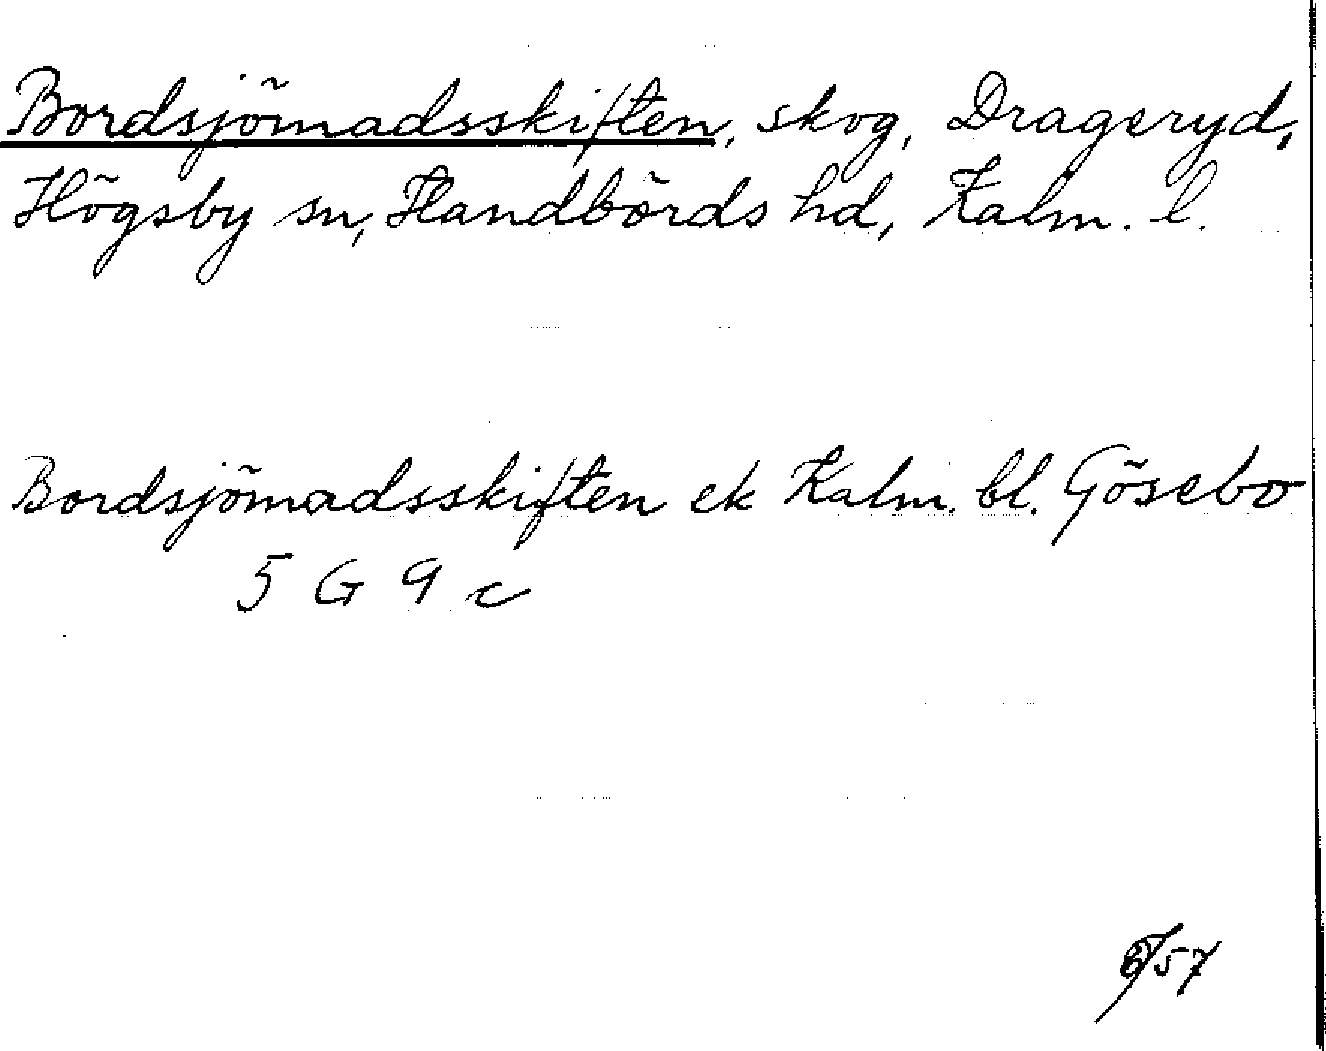 Bordsjömadsskiften, skog, Drageryd,
Högsby sn, Handbörds hd, Kalm. l.
Bordsjömadsskiften ek Kalm. bl. Gösebo
5 G 9 c